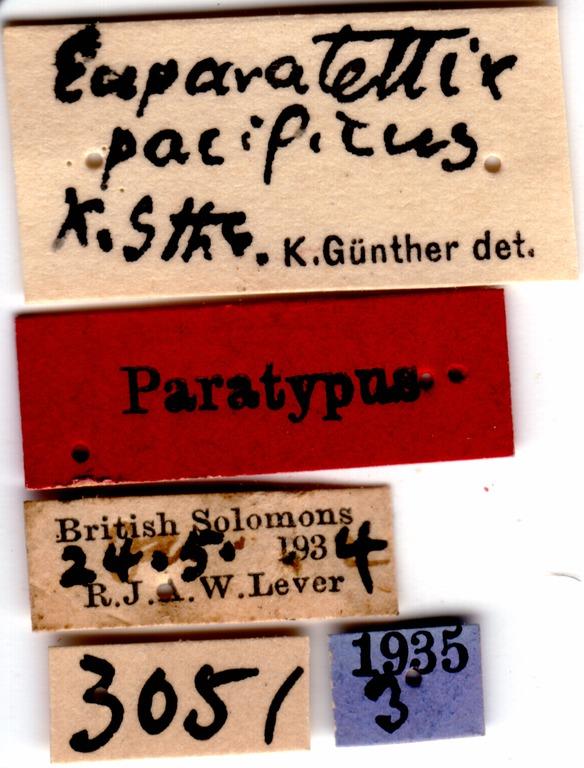 Euparatettix
pacificus
K. Sthr. K.Günther det.
Paratypus
British Solomons
24.5. 1934
R.J.A.W.Lever
3051
1935
3